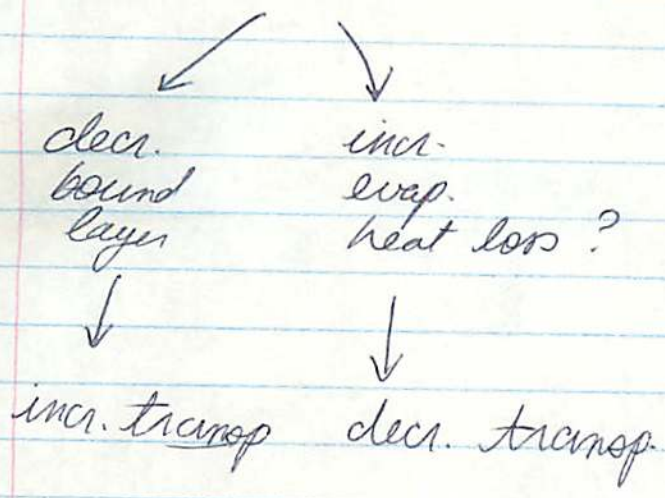 decr.
bound
layer
incr. transp
incr.
evap.
heat loss ?
decr. transp.